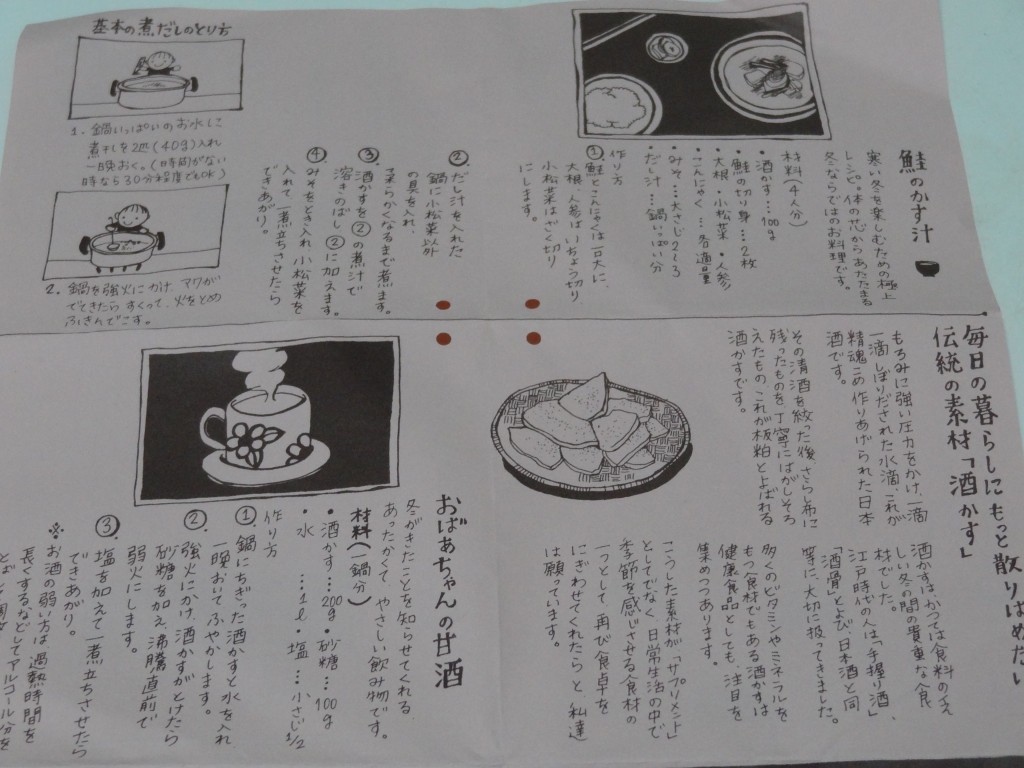 毎日の暮らしにもっと散りばめたい
伝統の素材「酒かす」
もろみに強い圧力をかけ、一滴
一滴しぼりだされた水滴、これが
精魂こめ作りあげられた日本
酒です。
その清酒を絞った後、さらし布に
残ったものを丁寧にはがしそろ
えたもの、これが板粕とよばれる
酒かすです。
酒かすは、かつては食料のえ
しい冬の間の貴重な食
材でした。
江戸時代の人は「手握り酒」、
「酒骨」とよび、日本酒と同
等に、大切に扱ってきました。
多くのビタミンやミネラルを
もつ食材でもある酒かすは
健康食品としても、注目を
集めつつあります。
こうした素材が、「サプリメント」
としてでなく、日常生活の中で
季節を感じさせる食材の
一つとして、再び食卓を
にぎわせてくれたら、と、私達
は願っています。
鮭のかす汁
寒い冬を楽しむための極上
レシピ。体の芯からあたたまる
冬ならではのお料理です。
材料(4人分)
・酒かす…100g
・鮭の切り身…2枚
・大根・小松菜・人参・
こんにゃく…各適量
・みそ…大さじ2〜3
・だし汁…鍋いっぱい分
作り方
① 鮭とこんにゃくは一口大に、
大根、人参は、いちょう切り
小松菜はざく切り
にします。
② だし汁を入れた
鍋に小松菜以外
の具を入れ、
柔らかくなるまで煮ます。
③ 酒かすを②の煮汁で
溶きのばし、②に加えます。
④ みそをとき入れ、小松菜を
入れて一煮立ちさせたら
できあがり。
基本の煮だしのとり方
1. 鍋いっぱいのお水に
煮干しを2匹(40g)入れ
一晩おく。(時間がない
時なら30分程度でもOK)
2. 鍋を強火にかけ、アワが
でてきたら、すくって、火をとめ
ふきんでこす。
おばあちゃんの甘酒
冬がきたことを知らせてくれる、
あったかくて、やさしい飲み物です。
材料(一鍋分)
・酒かす…200g・砂糖…100g
・水…1ℓ・塩…小さじ1/2
作り方
① 鍋にちぎった酒かすと水を入れ
一晩おいてふやかします。
② 強火にかけ、酒かすがとけたら
砂糖を加え、沸騰直前で
弱火にします。
③ 塩を加えて一煮立ちさせたら
できあがり。
※お酒の弱い方は、過熱時間を
長くするなどしてアルコール分を